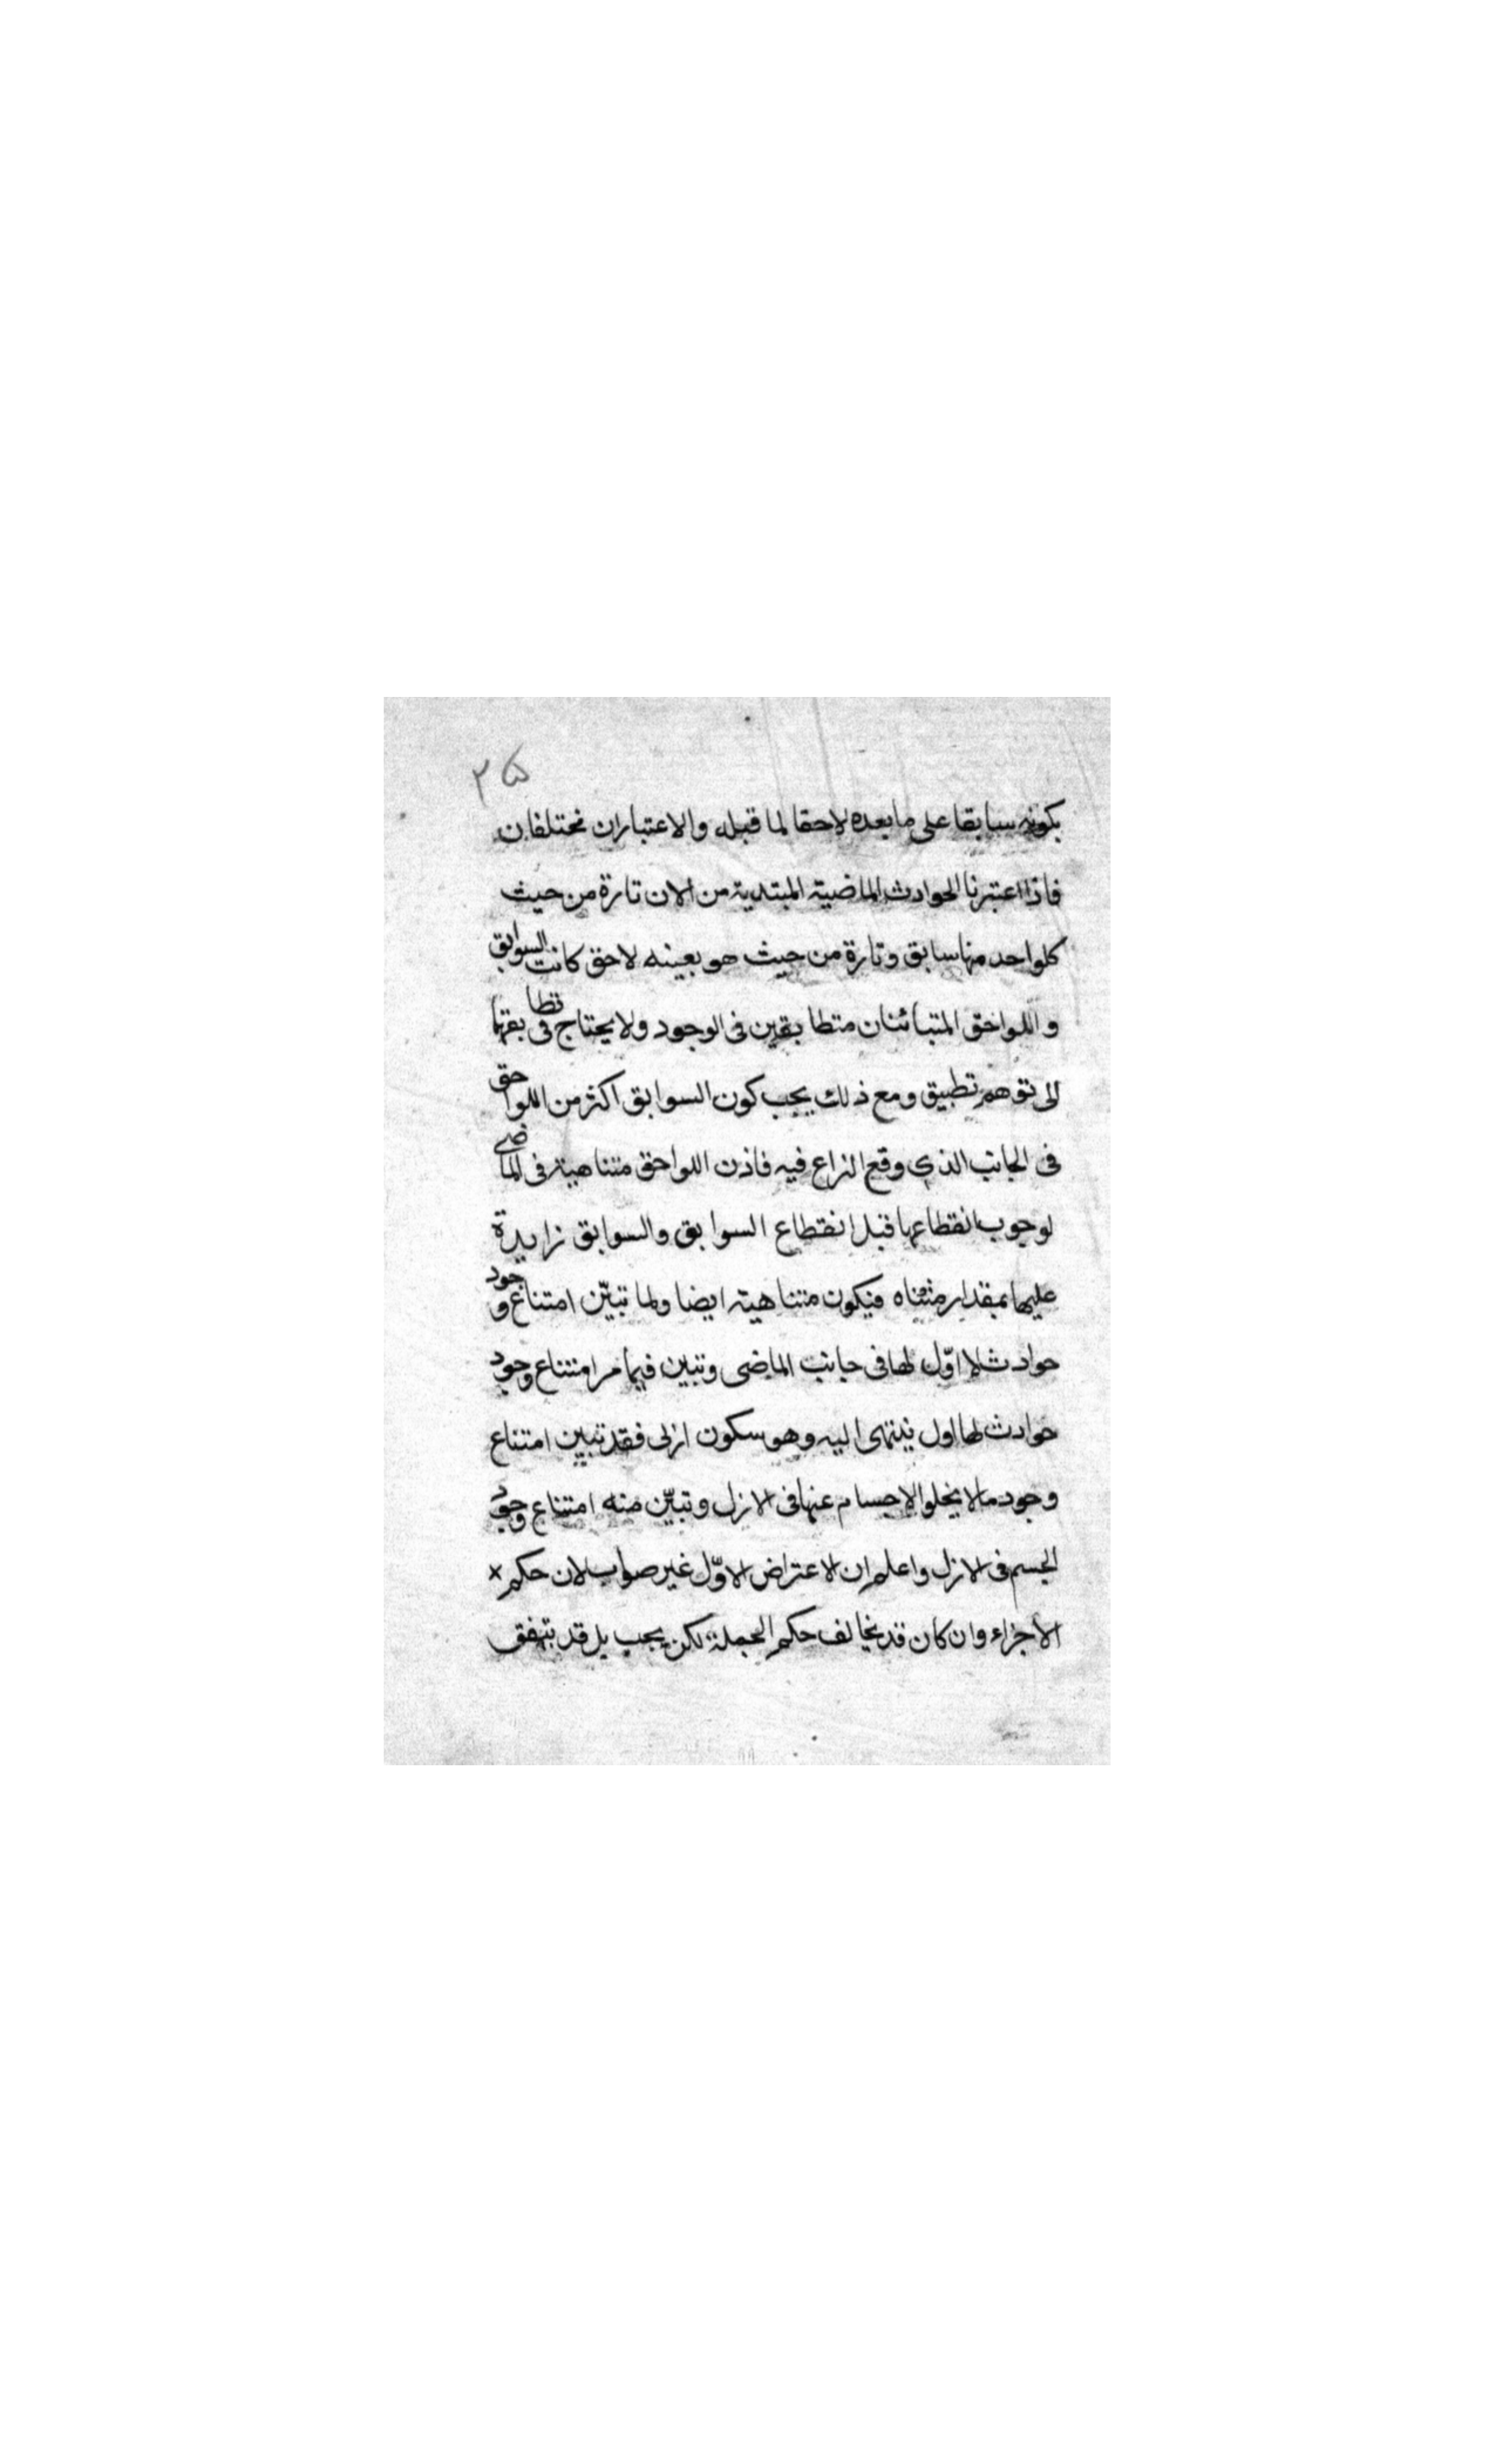 ۲۵
بكونه سابقا على ما بعده لاحقا لما قبله والاعتباران مختلفان
فاذا اعتبرنا الحوادث الماضية المبتدية من الان تارة من حيث
كلواحد منها سابق وتارة من حيث هو بعينه لاحق كانت السوابق
و اللواحق المتبائنان متطابقين فى الوجود ولا يحتاج فى تطابقهما
الى توهم تطبيق ومع ذلك يجب كون السوابق اكثر من اللواحق
فى الجانب الذى وقع النزاع فيه فاذن اللواحق متناهية فى الماضى
لوجوب انقطاعها قبل انقطاع السوابق والسوابق زايدة
عليها بمقدار متناه فيكون متناهية ايضا ولما تبيّن امتناع وجود
حوادث لا اوّل لها فى جانب الماضى وتبين فيما مر امتناع وجود
حوادث لها اول ينتهى اليه وهو سكون ازلى فقد تبين امتناع
وجود ما لا يخلو الاجسام عنها فى الازل وتبيّن منه امتناع وجود
الجسم فى الازل واعلم ان الاعتراض الاوّل غير صواب لان حكم ×
الاجزاء وان كان قد يخالف حكم الجملة لكن يجب بل قد يتفق